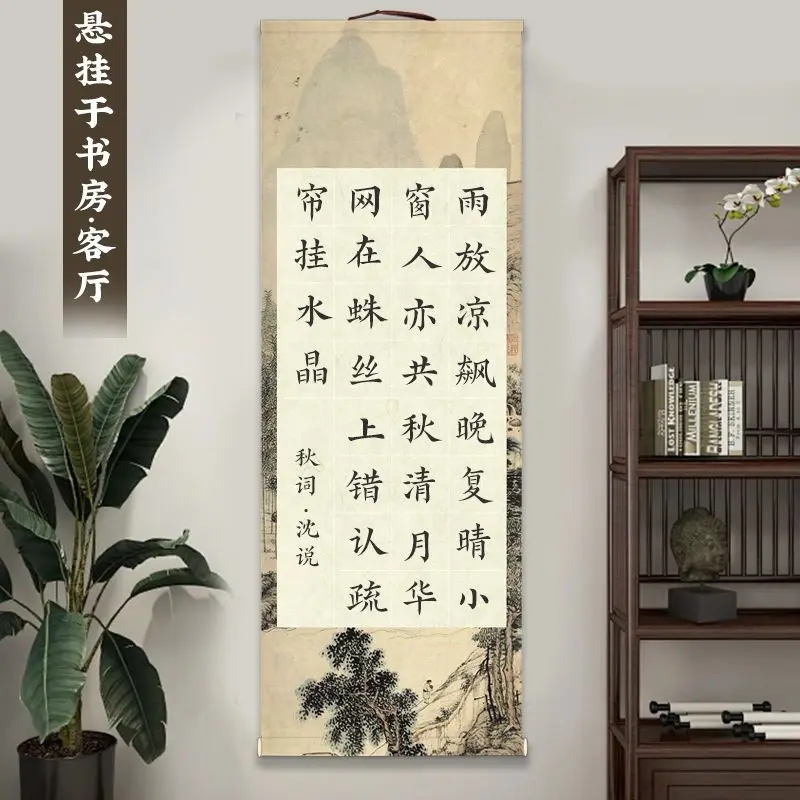 悬挂于书房·客厅
雨放凉飙晚复晴小
窗人亦共秋清月华
网在蛛丝上错认疏
帘挂水晶
秋词·沈说
LOST KINGDOMS
MILLENIUM
BANGLADESH